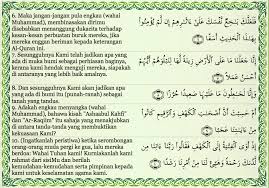 6. Maka jangan-jangan pula engkau (wahai
Muhammad), membinasakan dirimu
disebabkan menanggung dukacita terhadap
kesan-kesan perbuatan buruk mereka, jika
mereka enggan beriman kepada keterangan
Al-Quran ini.
7. Sesungguhnya Kami telah jadikan apa yang
ada di muka bumi sebagai perhiasan baginya,
kerana kami hendak menguji mereka, siapakah
di antaranya yang lebih baik amalnya.
8. Dan sesungguhnya Kami akan jadikan apa
yang ada di bumi itu (punah-ranah) sebagai
tanah yang tandus.
9. Adakah engkau menyangka (wahai
Muhammad), bahawa kisah "Ashaabul Kahfi"
dan "Ar-Raqiim" itu sahaja yang menakjubkan
di antara tanda-tanda yang membuktikan
kekuasaan Kami?
10. (Ingatkanlah peristiwa) ketika serombongan
orang-orang muda pergi ke gua, lalu mereka
berdoa: Wahai Tuhan kami! Kurniakanlah kami
rahmat dari sisiMu dan berilah
kemudahan-kemudahan serta pimpinan kepada
kami untuk keselamatan agama kami.
فَلَعَلَّكَ بَاخِعٌ نَّفْسَكَ عَلَىٰ آثَارِهِمْ إِن لَّمْ يُؤْمِنُوا
بِهَٰذَا الْحَدِيثِ أَسَفًا
إِنَّا جَعَلْنَا مَا عَلَى الْأَرْضِ زِينَةً لَّهَا لِنَبْلُوَهُمْ أَيُّهُمْ
أَحْسَنُ عَمَلًا
وَإِنَّا لَجَاعِلُونَ مَا عَلَيْهَا صَعِيدًا جُرُزًا
أَمْ حَسِبْتَ أَنَّ أَصْحَابَ الْكَهْفِ وَالرَّقِيمِ كَانُوا
مِنْ آيَاتِنَا عَجَبًا
إِذْ أَوَى الْفِتْيَةُ إِلَى الْكَهْفِ فَقَالُوا رَبَّنَا آتِنَا
مِن لَّدُنكَ رَحْمَةً وَهَيِّئْ لَنَا مِنْ أَمْرِنَا رَشَدًا